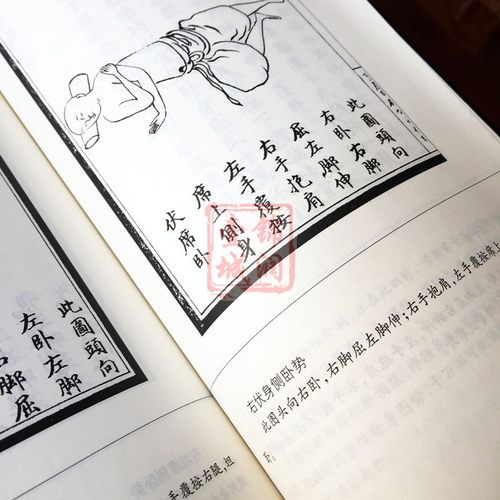 此圖頭向
右卧右脚
屈左脚伸
右手抱肩
左手覆按
席上側身
伏席卧
此圖頭向
左卧左脚
脚屈
右伏身侧卧势
此图头向右卧，右脚屈左脚伸；右手抱肩，左手覆按席
卧。
手覆按右腿，